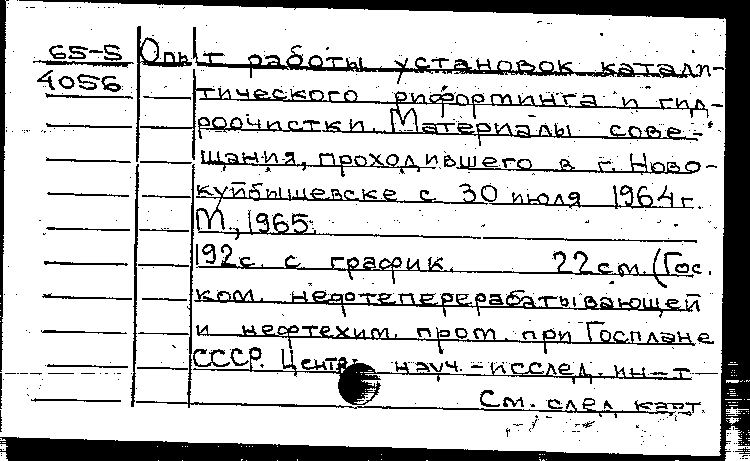 65-5 Опыт работы установок катали-
4056
тического рифортинга и гид-
роочистки. Материалы сове-
щания, проходившего в г. Ново-
куйбышевске с 30 июля 1964 г.
М., 1965.
192с. с график. 22см. (Гос.
ком. нефтеперерабатывающей
и нефтехим. пром. при Госплане
СССР. Центр. науч.-исслед. ин-т
См. след. карт.